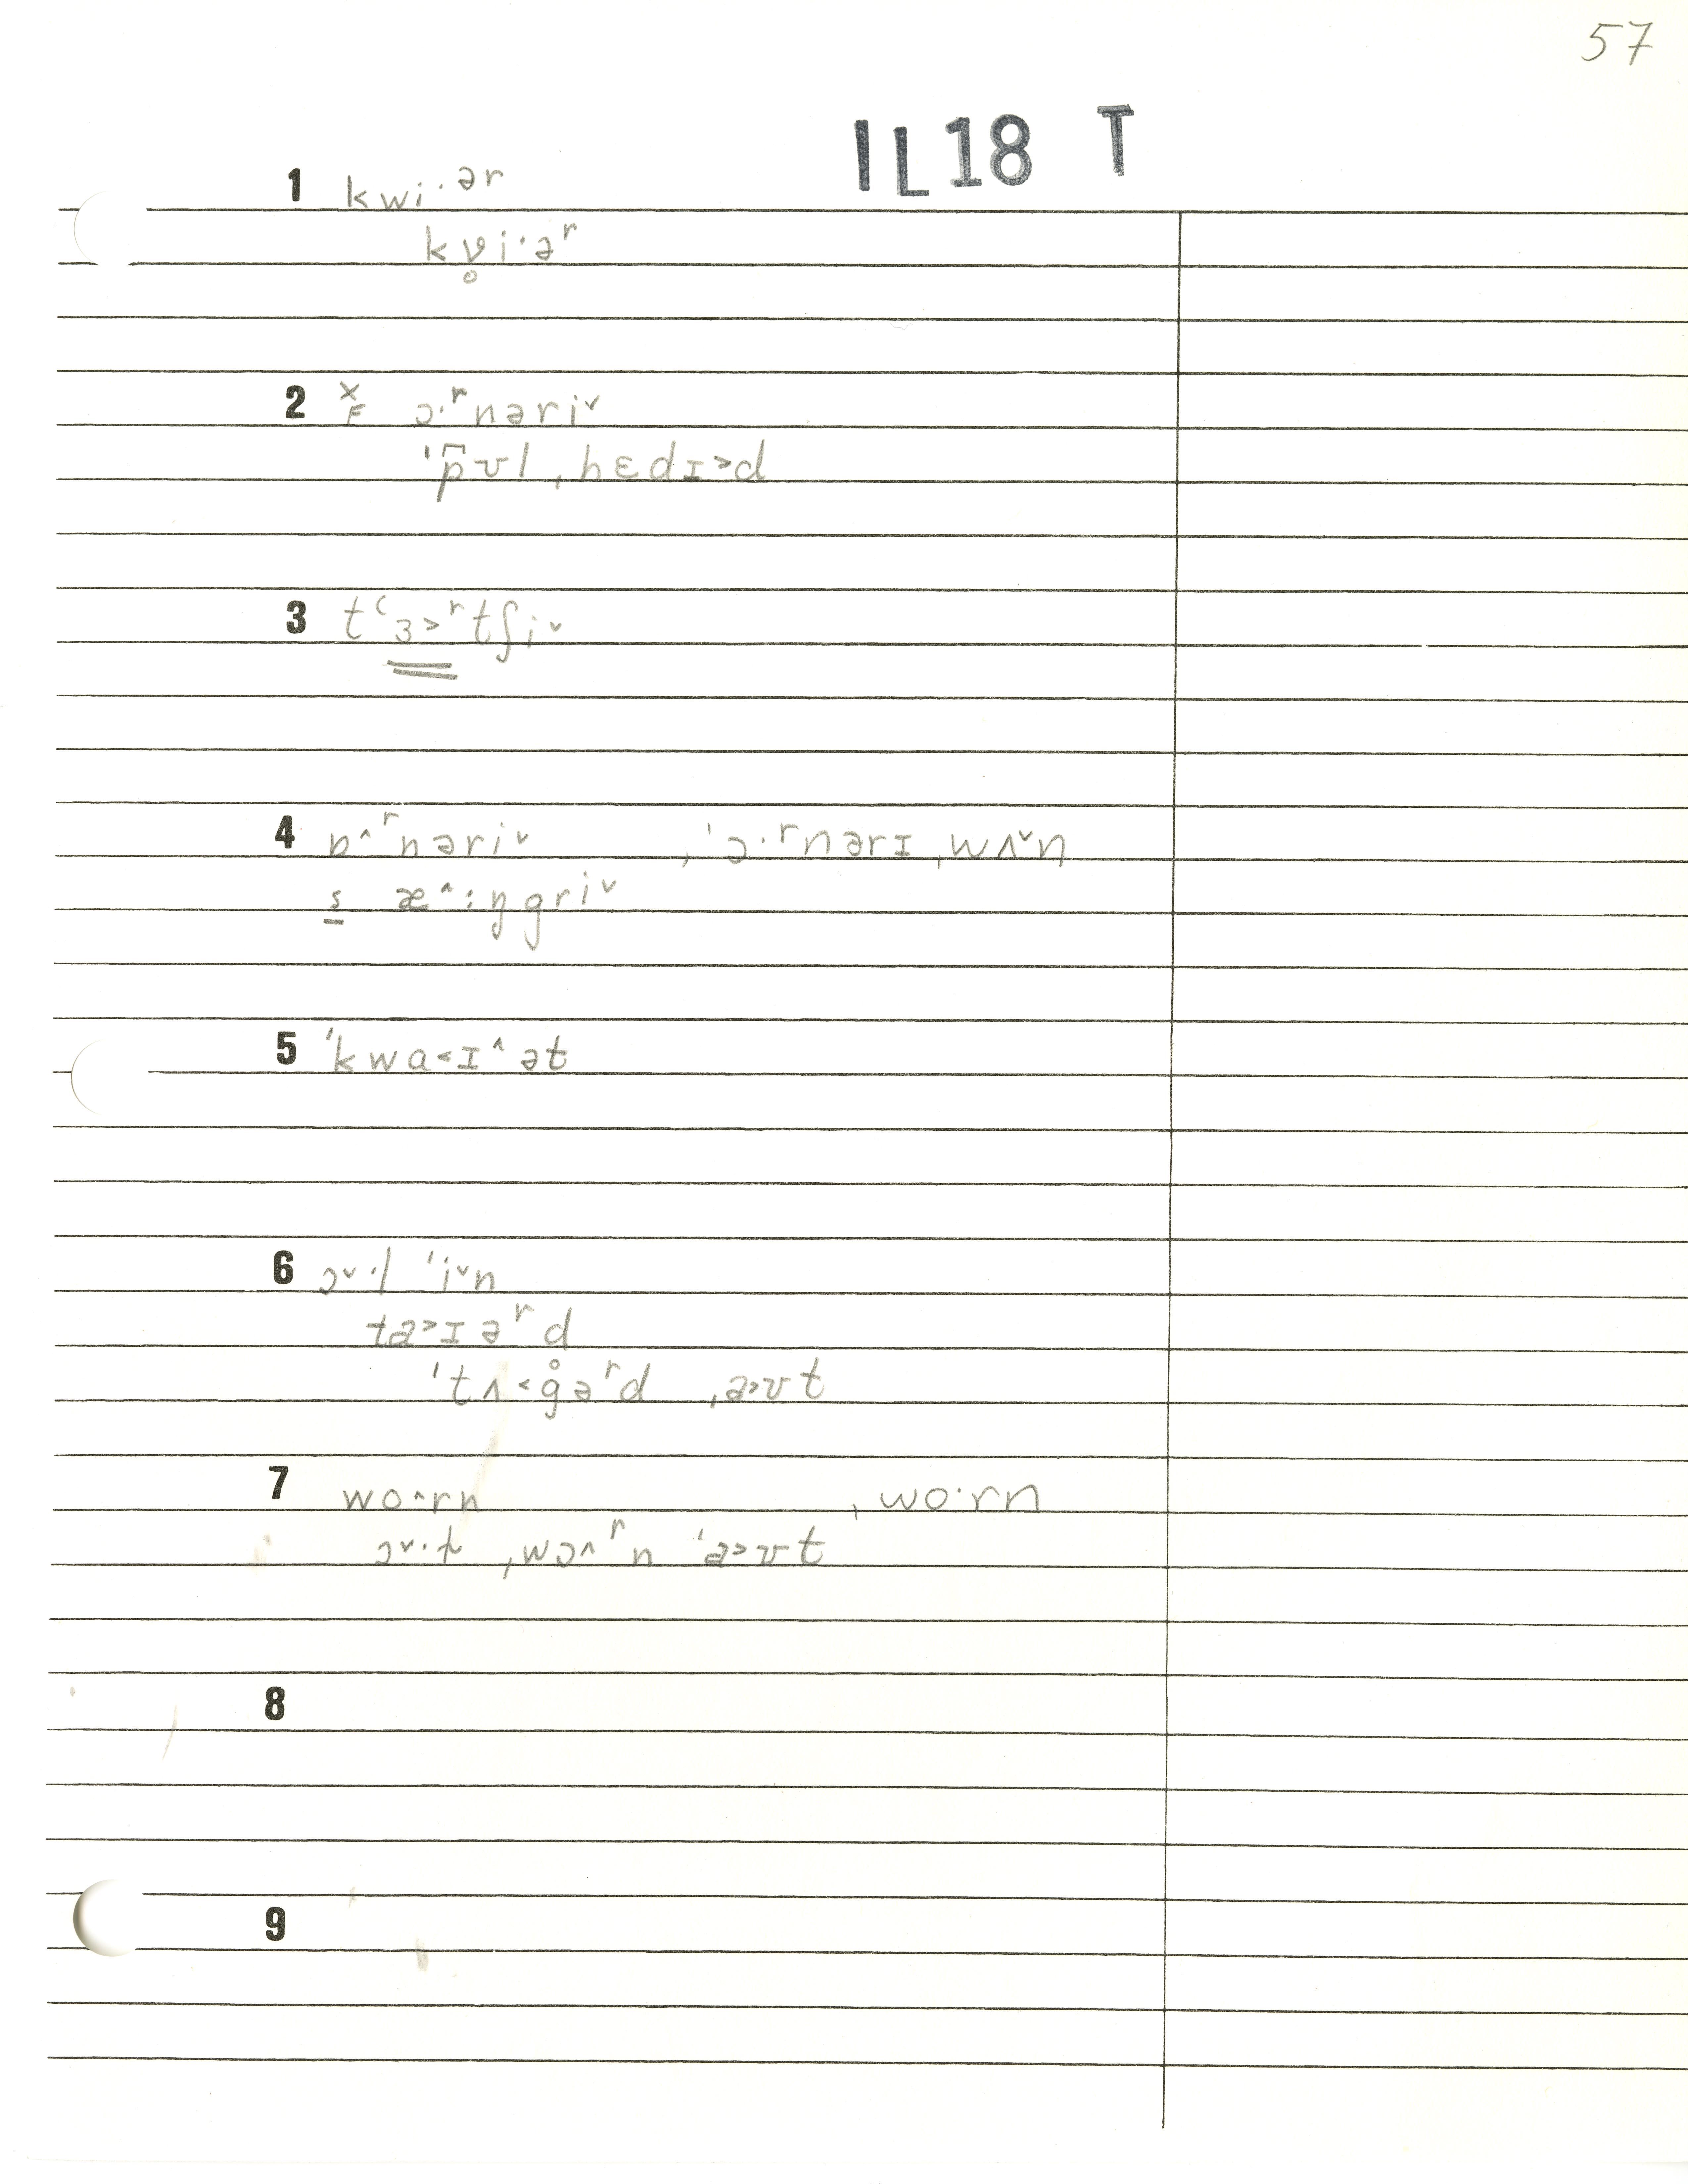 57
IL18 T
1 kwi·ər
kʋ̥i·əʳ
2 x̲F ɔ·ʳnəri˅
ˈp͆ʊl ˌhɛdɪ˃d
3 tʻɜ˃ʳtʃi˅
4 ɒ˄ʳnəri˅ , ˈɔ·ʳnərɪ ˌwʌ˅n
s æ˄:ŋgri˅
5 ˈkwa˂ɪ˄ət
6 ɔ˅·l ˈi˅n
ta˃ɪəʳd
ˈtʌ˂g̊əʳd ˌa˃ʊt
7 wo˄rn , wo·rn
ɔ˅·ɫ ˌwɔ˄ʳn ˈa˃ʊt
8
9